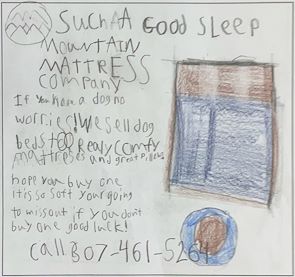 SUCHAA GOOD SLEEP
MOUNTAIN
MATTRESS
COMPANY
If you have a dog no
worries! We sell dog
beds too Realy comfy
mattreses and great pillows
hope you buy one
it is so soft your going
to miss out if you don't
buy one good luck!
call 807-461-5264